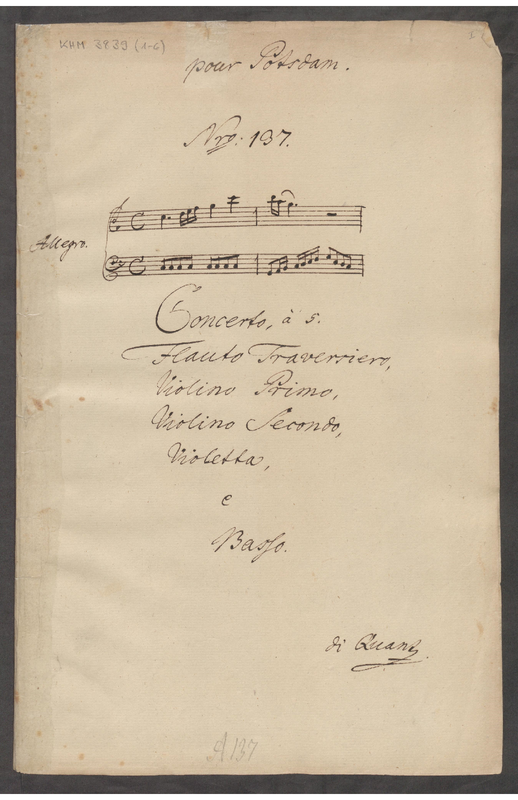 KHM 3839 (1-6)
pour Potsdam.
Nro: 137.
Allegro.
Concerto, à 5.
Flauto Traversiero,
Violino Primo,
Violino Secondo,
Violetta,
e
Basso.
di Quantz.
A 137